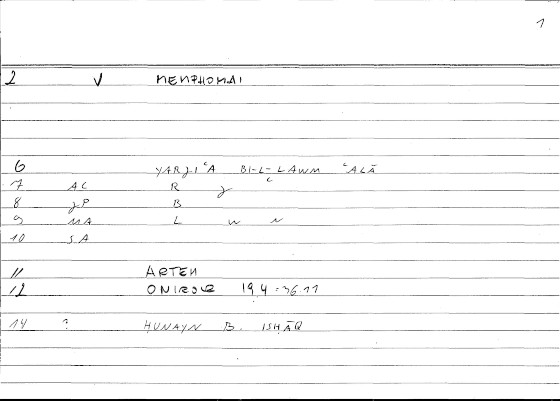 1
2 V MEMPHOMAI
6 YARJIʿA BI-L-LAWM ʿALĀ
7 AC R J ʿ
8 JP B
9 MA L W M
10 SA
11 ARTEM
12 ONIROC 19,4 = 36.11
14 ? HUNAYN B. ISHĀQ